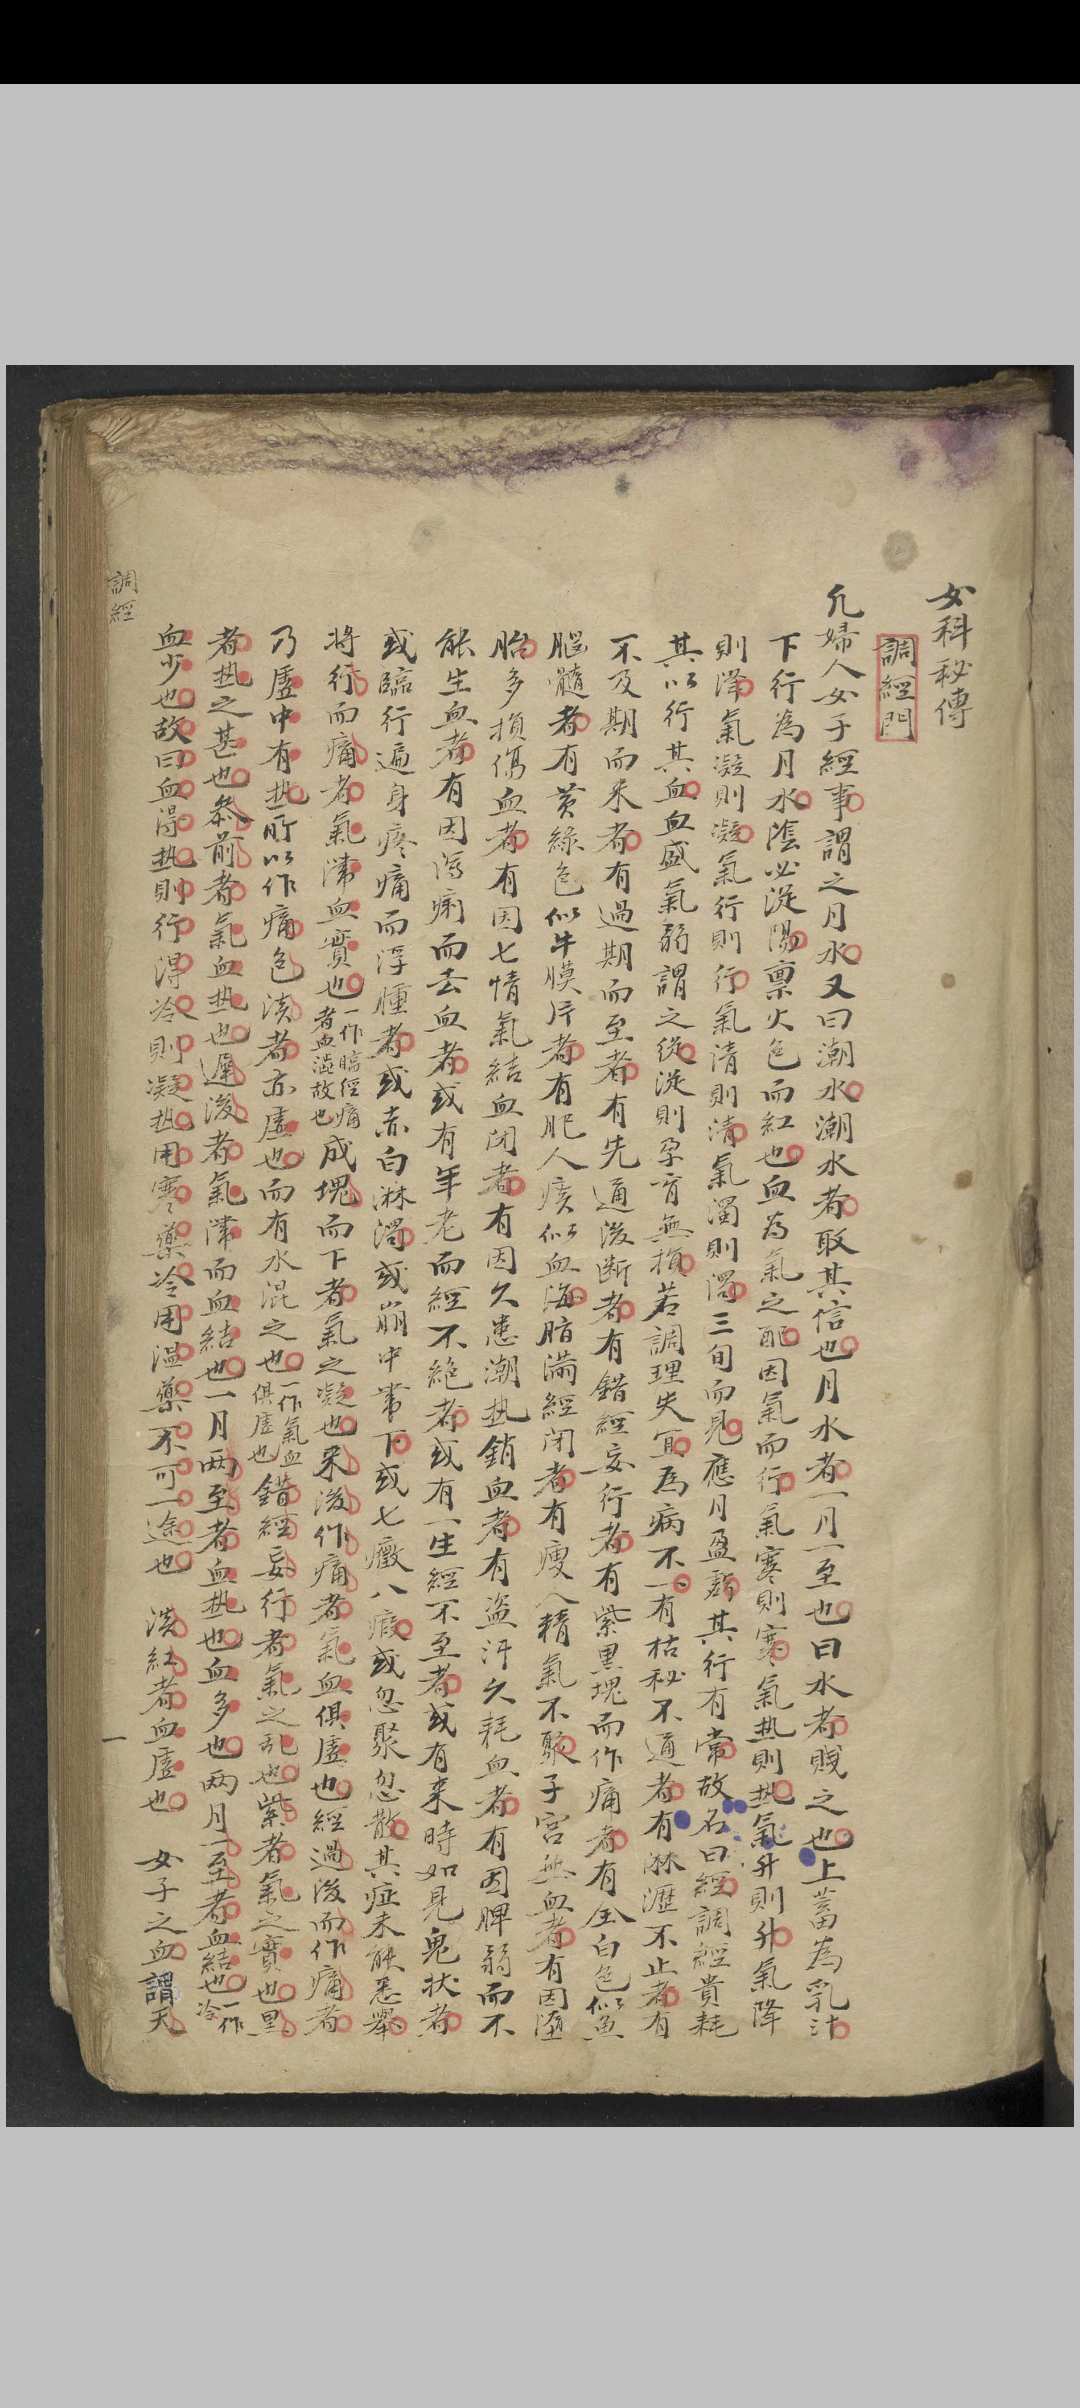 女科秘傳
調經門
凢婦人女子經事謂之月水又曰潮水潮水者取其信也月水者一月一至也曰水者賤之也上蓄為乳汁
下行為月水陰必従陽禀火色而紅也血為氣之配因氣而行氣寒則寒氣热則热氣升則升氣降
則降氣凝則凝氣行則行氣清則清氣濁則濁三旬而見應月盈虧其行有常故名曰經調經貴耗
其以行其血血盛氣弱謂之從従則孕育無損若調理失宜為病不一有枯秘不通者有淋瀝不止者有
不及期而来者有過期而至者有先通後断者有錯經妄行者有紫黒塊而作痛者有全白色似魚
腦髓者有黄綠色似牛膜片者有肥人痰似血海脂滿經閉者有瘦人精氣不聚子宮無血者有因墮
胎多損傷血者有因七情氣結血閉者有因久患潮热銷血者有盗汗久耗血者有因脾弱而不
能生血者有因瀉痢而去血者或有年老而經不絶者或有一生經不至者或有来時如見鬼状者
或臨行遍身疼痛而浮腫者或赤白淋濁或崩中帯下或七癥八瘕或忽聚忽散其症未能悉舉
将行而痛者氣滞血實也一作臨經痛者血澁故也成塊而下者氣之凝也来後作痛者氣血俱虛也經過後而作痛者
乃虛中有热所以作痛色淡者亦虛也而有水混之也一作氣血俱虛也錯經妄行者氣之乱也紫者氣之實也黒
者热之甚也叅前者氣血热也遲後者氣滞而血結也一月两至者血热也血多也两月一至者血結也一作冷
血少也故曰血得热則行得冷則凝热用寒藥冷用温藥不可一途也 淡紅者血虛也 女子之血謂天
調經
一